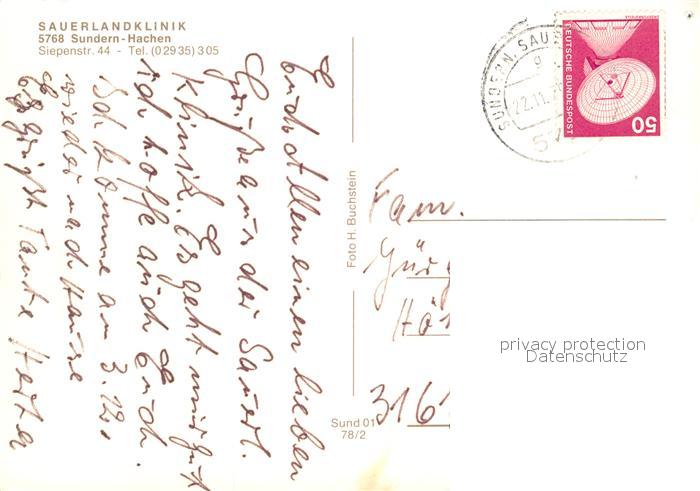 SAUERLANDKLINIK
5768 Sundern-Hachen
Siepenstr. 44 - Tel. (02935) 305
Euch allen einen lieben
Grüße aus der Sauerl.
Klinik. Es geht mir gut
ich hoffe auch Euch.
Ich komme am 3.12.
wieder nach Hause
Es grüßt Tante Herta
Foto H. Buchstein
Sund 01
78/2
SUNDERN, SAU
22.11.
DEUTSCHE BUNDESPOST
50
Fam.
316
privacy protection
Datenschutz